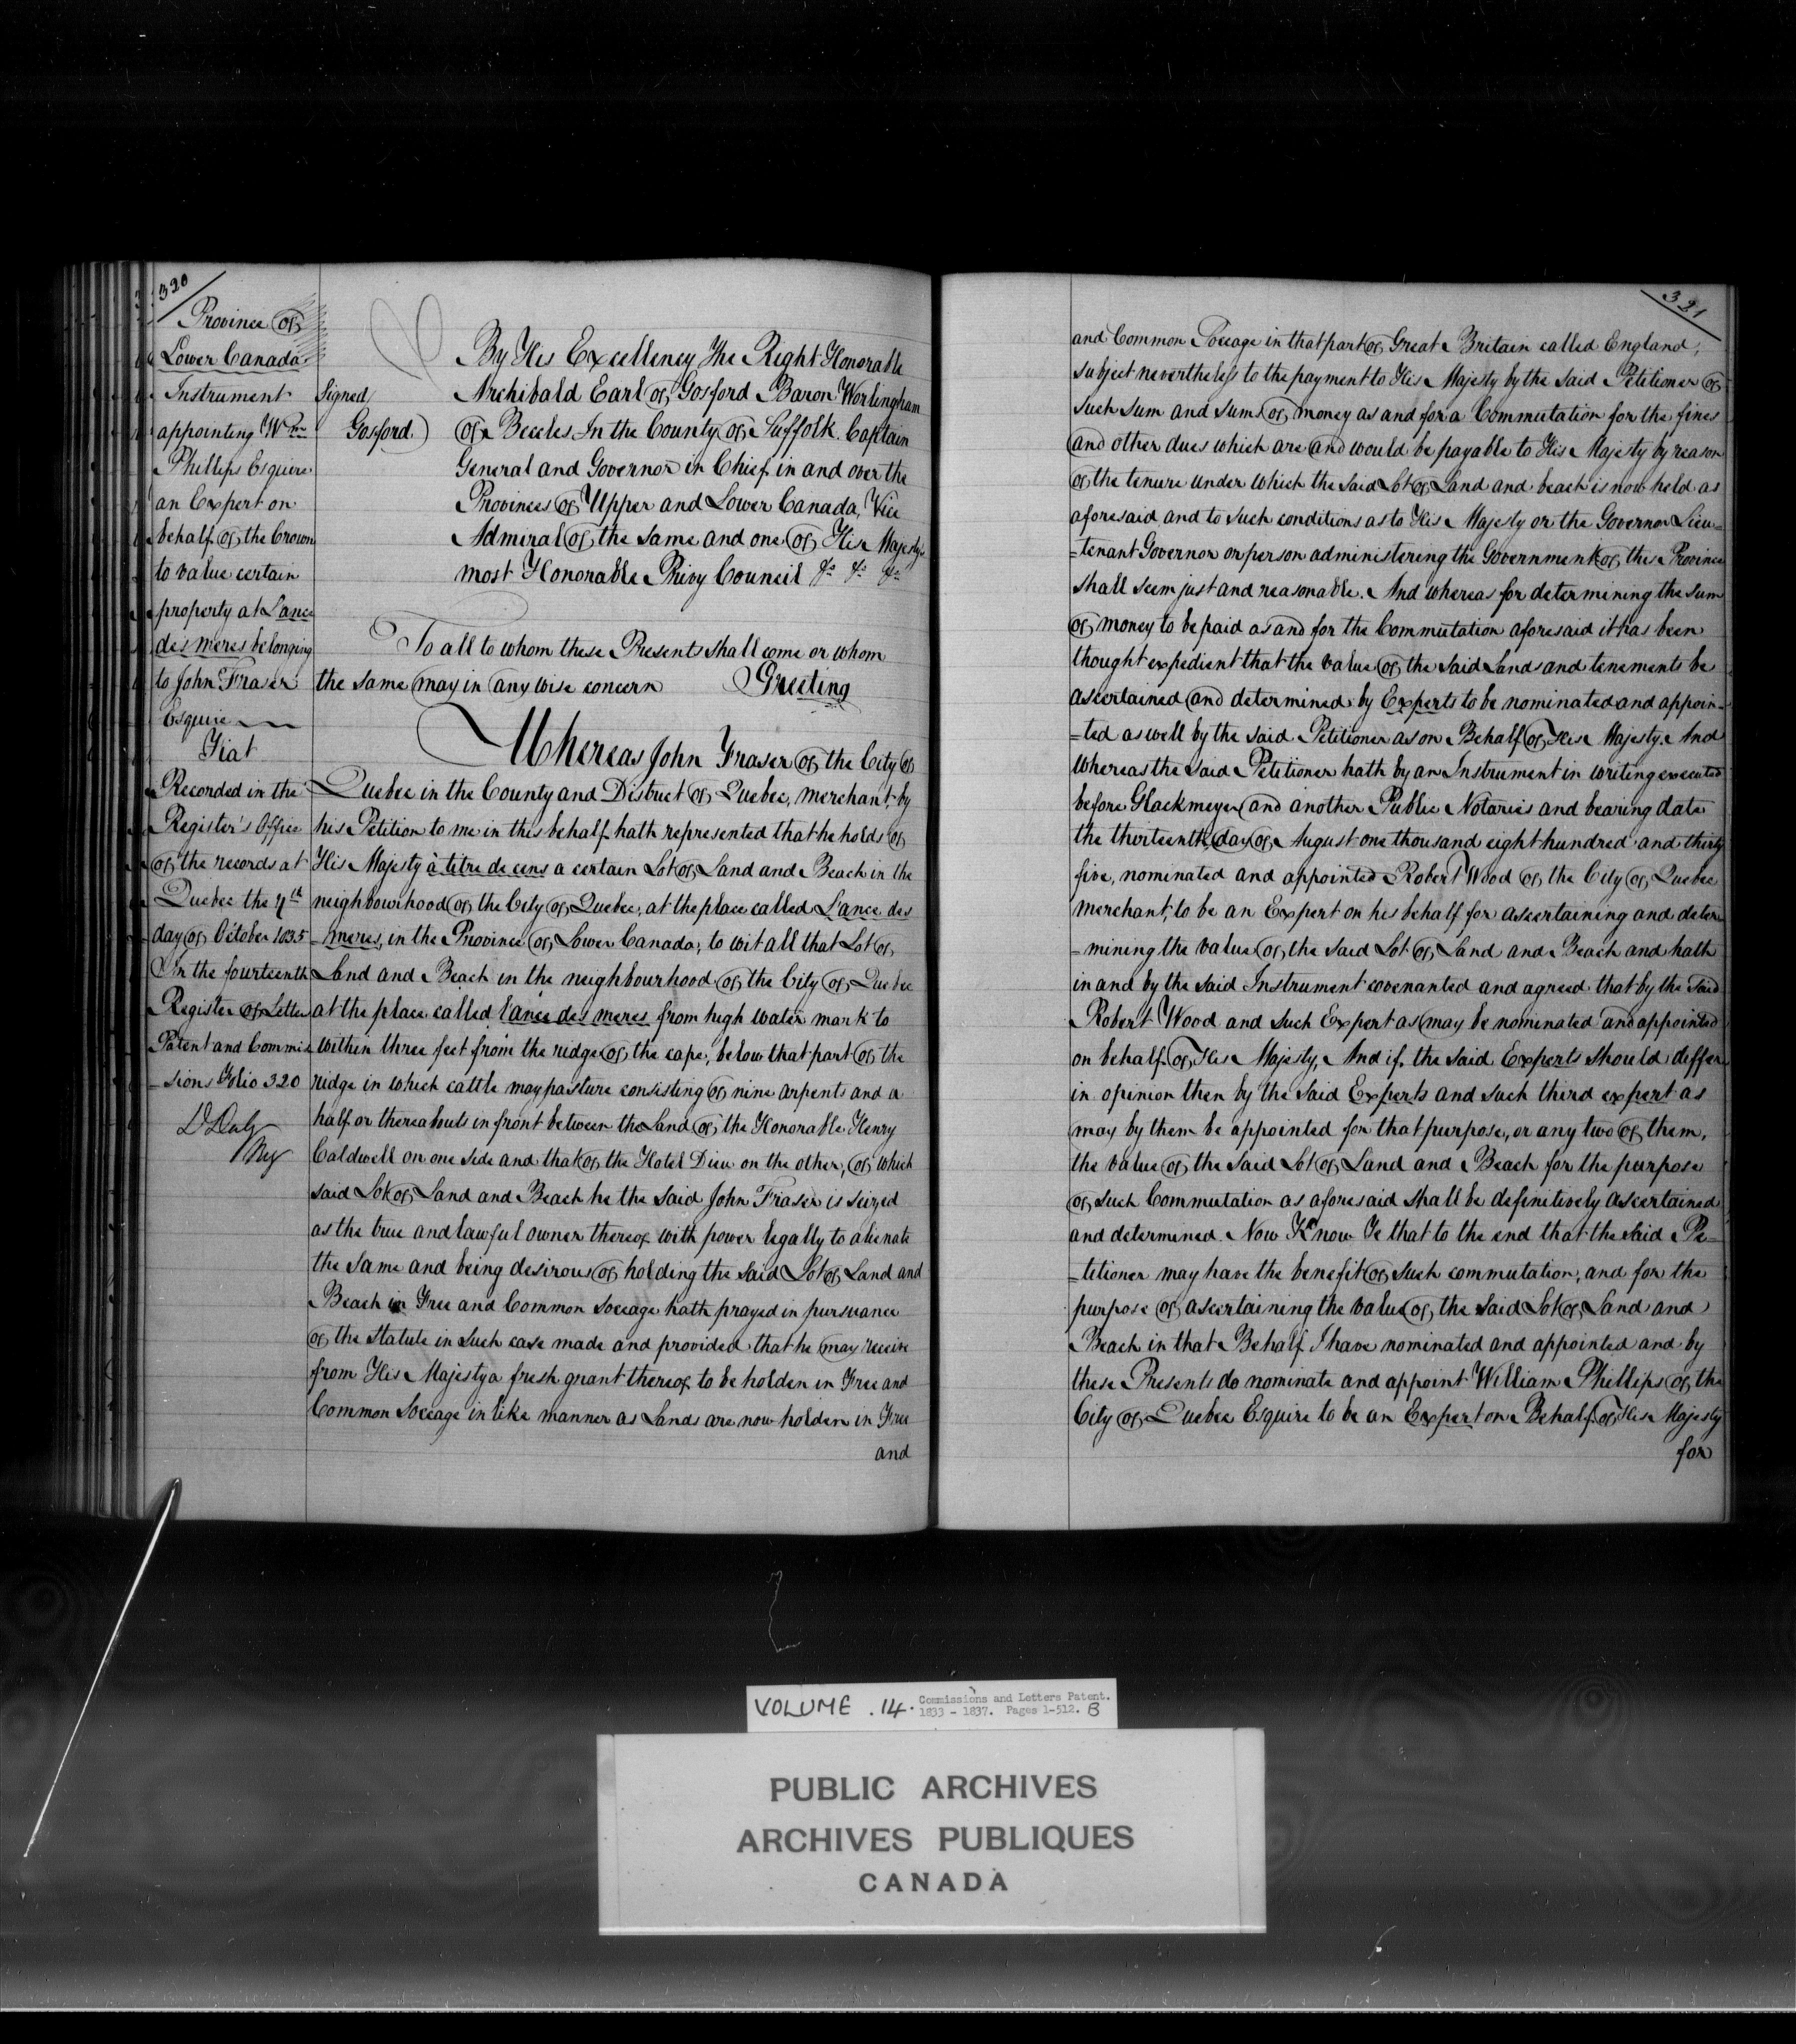 320
Province of
Lower Canada
Instrument
appointing Wm
Phillips Esquire
an Expert on
behalf of the Crown
to value certain
property at Lance
des meres belonging
to John Fraser
Esquire
Fiat
Recorded in the
Register's Office
of the records at
Quebec the 7th
day of October 1835
In the fourteenth
Register of Letters
Patent and Commis
=sions Folio 320
D Daly
Reg
Signed
Gosford)
By His Excellency The Right Honorable
Archibald Earl of Gosford Baron Worlingham
of Beccles In the County of Suffolk Captain
General and Governor in Chief in and over the
Provinces of Upper and Lower Canada, Vice
Admiral of the same and one of His Majesty's
most Honorable Privy Council &c &c &c
To all to whom these Presents shall come or whom
the same may in any wise concern Greeting
Whereas John Fraser of the City of
Quebec in the County and District of Quebec, merchant by
his Petition to me in this behalf hath represented that he holds of
His Majesty à titre de cens a certain Lot of Land and Beach in the
neighbourhood of the City of Quebec, at the place called L'ance des
=meres, in the Province of Lower Canada; to wit all that Lot of
Land and Beach in the neighbourhood of the City of Quebec
at the place called l'ance des meres from high water mark to
within three feet from the ridge of the cape, below that part of the
ridge in which cattle may pasture consisting of nine arpents and a
half or thereabouts in front between the Land of the Honorable Henry
Caldwell on one side and that of the Hotel Dieu on the other, of which
said Lot of Land and Beach he the said John Fraser is seized
as the true and lawful owner thereof with power legally to alienate
the same and being desirous of holding the said Lot of Land and
Beach in Free and Common soccage hath prayed in pursuance
of the statute in such case made and provided that he may receive
from His Majesty a fresh grant thereof to be holden in Free and
Common Soccage in like manner as Lands are now holden in Free
and
321
and Common Soccage in that part of Great Britain called England,
subject nevertheless to the payment to His Majesty by the said Petitioner of
such sum and sums of money as and for a Commutation for the fines
and other dues which are and would be payable to His Majesty by reason
of the tenure under which the said Lot of Land and beach is now held as
aforesaid and to such conditions as to His Majesty or the Governor Lieu=
=tenant Governor or person administering the Government of this Province
shall seem just and reasonable. And whereas for determining the sum
of money to be paid as and for the Commutation aforesaid it has been
thought expedient that the value of the said Lands and tenements be
ascertained and determined by Experts to be nominated and appoin=
=ted as well by the said Petitioner as on Behalf of His Majesty. And
whereas the said Petitioner hath by an Instrument in writing executed
before Glackmeyer and another Public Notaries and bearing date
the thirteenth day of August one thousand eight hundred and thirty
five, nominated and appointed Robert Wood of the City of Quebec
merchant, to be an Expert on his behalf for ascertaining and deter
=mining the value of the said Lot of Land and Beach and hath
in and by the said Instrument covenanted and agreed that by the said
Robert Wood and such Expert as may be nominated and appointed
on behalf of His Majesty, And if the said Experts should differ
in opinion then by the said Experts and such third expert as
may by them be appointed for that purpose, or any two of them,
the value of the said Lot of Land and Beach for the purpose
of such Commutation as aforesaid shall be definitively ascertained
and determined. Now Know Ye that to the end that the said Pe=
=titioner may have the benefit of such commutation, and for the
purpose of ascertaining the value of the said Lot of Land and
Beach in that Behalf I have nominated and appointed and by
these Presents do nominate and appoint William Phillips of the
City of Quebec Esquire to be an Expert on Behalf of His Majesty
for
VOLUME .14. Commissions and Letters Patent.
1833 - 1837. Pages 1-512. B
PUBLIC ARCHIVES
ARCHIVES PUBLIQUES
CANADA